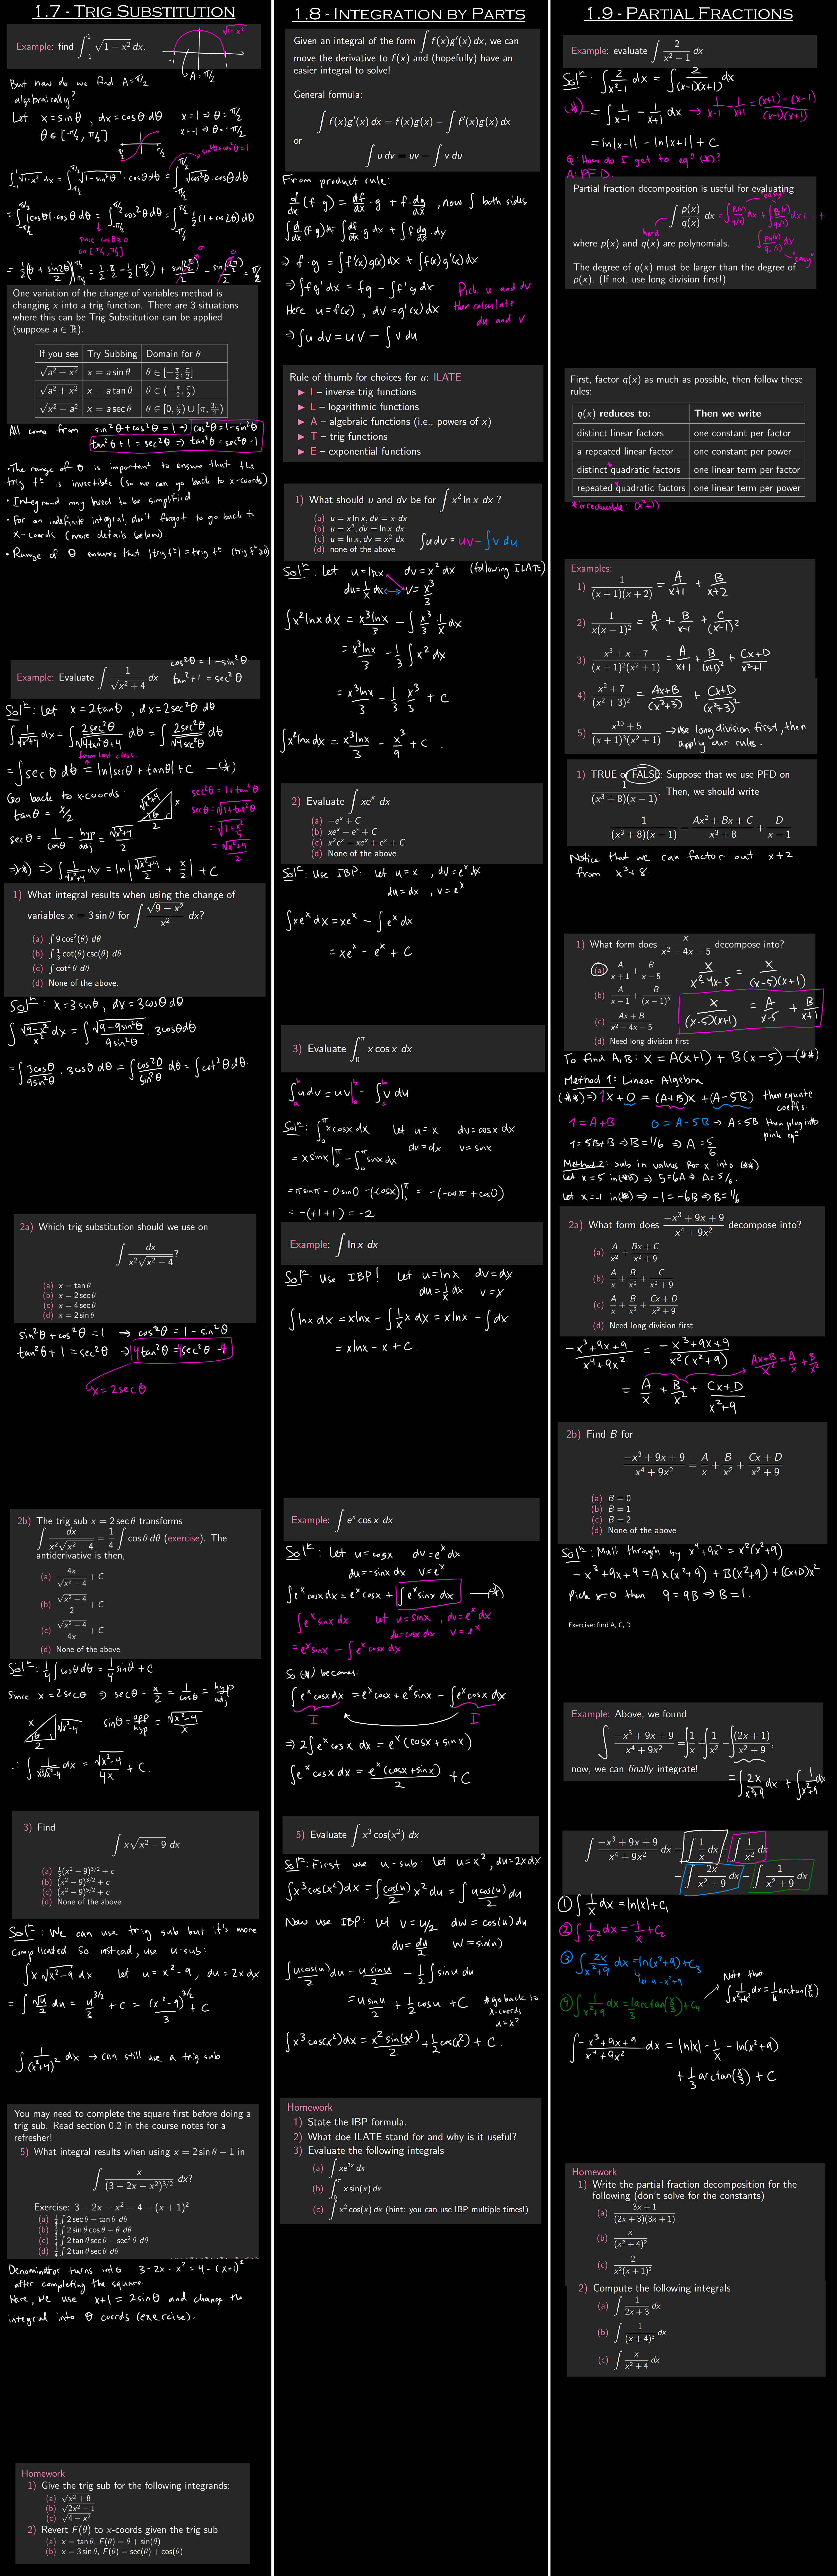 1.7 - Trig Substitution
Example: find ∫_{-1}^{1} √(1 − x²) dx.
√(1-x²)
A = π/2
But how do we find A = π/2
algebraically?
Let x = sinθ, dx = cosθ dθ
x=1 ⇒ θ = π/2
x=-1 ⇒ θ = -π/2
θ ∈ [-π/2, π/2]
sin²θ+cos²θ=1
∫_{-1}^{1} √(1-x²) dx = ∫_{-π/2}^{π/2} √(1-sin²θ) · cosθ dθ = ∫_{-π/2}^{π/2} √(cos²θ) · cosθ dθ
= ∫_{-π/2}^{π/2} |cosθ| · cosθ dθ = ∫_{-π/2}^{π/2} cos²θ dθ = ∫_{-π/2}^{π/2} ½(1+cos2θ) dθ
since cosθ≥0
on [-π/2, π/2]
One variation of the change of variables method is
changing x into a trig function. There are 3 situations
where this can be Trig Substitution can be applied
(suppose a ∈ ℝ).
If you see | Try Subbing | Domain for θ
√(a² − x²) | x = a sin θ | θ ∈ [−π/2, π/2]
√(a² + x²) | x = a tan θ | θ ∈ (−π/2, π/2)
√(x² − a²) | x = a sec θ | θ ∈ [0, π/2) ∪ [π, 3π/2)
All come from sin²θ + cos²θ = 1 ⇒ cos²θ = 1-sin²θ
tan²θ + 1 = sec²θ ⇒ tan²θ = sec²θ - 1
• The range of θ is important to ensure that the
trig fⁿ is invertible (so we can go back to x-coords)
• Integrand may need to be simplified
• For an indefinite integral, don't forget to go back to
x-coords (more details below)
• Range of θ ensures that |trig fⁿ| = trig fⁿ (trig fⁿ ≥0)
Example: Evaluate ∫ 1/√(x² + 4) dx
cos²θ = 1 - sin²θ
tan²+1 = sec²θ
Solⁿ: Let x = 2tanθ, dx = 2sec²θ dθ
∫ 1/√(x²+4) dx = ∫ 2sec²θ/√(4tan²θ+4) dθ = ∫ 2sec²θ/√(4sec²θ) dθ
from last class
= ∫ secθ dθ = ln|secθ + tanθ| + C —(*)
Go back to x-coords:
tanθ = x/2
√(x²+4)
x
θ
2
secθ = 1/cosθ = hyp/adj = √(x²+4)/2
sec²θ = 1+tan²θ
secθ = √(1+tan²θ)
= √(1+x²/4)
= √(x²+4)/2
(*) ⇒ ∫ 1/√(x²+4) dx = ln|√(x²+4)/2 + x/2| + C
1) What integral results when using the change of
variables x = 3 sin θ for ∫ √(9 − x²)/x² dx?
(a) ∫ 9 cos²(θ) dθ
(b) ∫ ⅓ cot(θ) csc(θ) dθ
(c) ∫ cot² θ dθ
(d) None of the above.
Solⁿ: x = 3sinθ, dx = 3cosθ dθ
∫ √(9-x²)/x² dx = ∫ √(9-9sin²θ)/9sin²θ · 3cosθ dθ
= ∫ 3cosθ/9sin²θ · 3cosθ dθ = ∫ cos²θ/sin²θ dθ = ∫ cot²θ dθ.
2a) Which trig substitution should we use on
∫ dx/(x²√(x² − 4))?
(a) x = tan θ
(b) x = 2 sec θ
(c) x = 4 sec θ
(d) x = 2 sin θ
sin²θ + cos²θ = 1 ⇒ cos²θ = 1 - sin²θ
tan²θ + 1 = sec²θ ⇒ 4tan²θ = 4sec²θ - 4
x = 2secθ
2b) The trig sub x = 2 sec θ transforms
∫ dx/(x²√(x² − 4)) = ¼ ∫ cos θ dθ (exercise). The
antiderivative is then,
(a) 4x/√(x² − 4) + C
(b) √(x² − 4)/2 + C
(c) √(x² − 4)/4x + C
(d) None of the above
Solⁿ: ¼ ∫ cosθ dθ = ¼ sinθ + C
Since x = 2secθ ⇒ secθ = x/2 = 1/cosθ = hyp/adj
x
√(x²-4)
θ
2
sinθ = opp/hyp = √(x²-4)/x
∴ ∫ 1/(x²√(x²-4)) dx = √(x²-4)/4x + C.
3) Find
∫ x√(x² − 9) dx
(a) ⅓(x² − 9)^{3/2} + c
(b) (x² − 9)^{3/2} + c
(c) (x² − 9)^{5/2} + c
(d) None of the above
Solⁿ: We can use trig sub but it's more
complicated. So instead, use u-sub:
∫ x√(x²-9) dx let u = x²-9, du = 2x dx
= ∫ √u/2 du = u^{3/2}/3 + C = (x²-9)^{3/2}/3 + C.
∫ 1/(x²+4)² dx → can still use a trig sub
You may need to complete the square first before doing a
trig sub. Read section 0.2 in the course notes for a
refresher!
5) What integral results when using x = 2 sin θ − 1 in
∫ x/(3 − 2x − x²)^{3/2} dx?
Exercise: 3 − 2x − x² = 4 − (x + 1)²
(a) ¼ ∫ 2 sec θ − tan θ dθ
(b) ¼ ∫ 2 sin θ cos θ − θ dθ
(c) ¼ ∫ 2 tan θ sec θ − sec² θ dθ
(d) ¼ ∫ 2 tan θ sec θ dθ
Denominator turns into 3-2x-x² = 4-(x+1)²
after completing the square.
Here, we use x+1 = 2sinθ and change the
integral into θ coords (exercise).
Homework
1) Give the trig sub for the following integrands:
(a) √(x² + 8)
(b) √(2x² − 1)
(c) √(4 − x²)
2) Revert F(θ) to x-coords given the trig sub
(a) x = tan θ, F(θ) = θ + sin(θ)
(b) x = 3 sin θ, F(θ) = sec(θ) + cos(θ)
1.8 - Integration by Parts
Given an integral of the form ∫ f(x)g′(x) dx, we can
move the derivative to f(x) and (hopefully) have an
easier integral to solve!
General formula:
∫ f(x)g′(x) dx = f(x)g(x) − ∫ f′(x)g(x) dx
or
∫ u dv = uv − ∫ v du
From product rule:
d/dx (f·g) = df/dx · g + f · dg/dx, now ∫ both sides
∫ d/dx (f·g) dx = ∫ df/dx · g dx + ∫ f dg/dx · dx
⇒ f·g = ∫ f'(x)g(x) dx + ∫ f(x)g'(x) dx
⇒ ∫ fg' dx = fg - ∫ f'g dx
Here u = f(x), dv = g'(x) dx
⇒ ∫ u dv = uv - ∫ v du
Pick u and dv
then calculate
du and v
Rule of thumb for choices for u: ILATE
▶ I – inverse trig functions
▶ L – logarithmic functions
▶ A – algebraic functions (i.e., powers of x)
▶ T – trig functions
▶ E – exponential functions
1) What should u and dv be for ∫ x² ln x dx ?
(a) u = x ln x, dv = x dx
(b) u = x², dv = ln x dx
(c) u = ln x, dv = x² dx
(d) none of the above
∫ u dv = uv - ∫ v du
Solⁿ: Let u = lnx dv = x² dx (following ILATE)
du = 1/x dx v = x³/3
∫ x² lnx dx = x³lnx/3 - ∫ x³/3 · 1/x dx
= x³lnx/3 - ⅓ ∫ x² dx
= x³lnx/3 - ⅓ x³/3 + C
∫ x² lnx dx = x³lnx/3 - x³/9 + C.
2) Evaluate ∫ xeˣ dx
(a) −eˣ + C
(b) xeˣ − eˣ + C
(c) x²eˣ − xeˣ + eˣ + C
(d) None of the above
Solⁿ: Use IBP: Let u = x, dv = eˣ dx
du = dx, v = eˣ
∫ xeˣ dx = xeˣ - ∫ eˣ dx
= xeˣ - eˣ + C
3) Evaluate ∫_0^π x cos x dx
∫_a^b u dv = uv|_a^b - ∫_a^b v du
Solⁿ: ∫_0^π x cosx dx let u = x dv = cosx dx
du = dx v = sinx
= x sinx|_0^π - ∫_0^π sinx dx
= π sinπ - 0 sin0 -(-cosx)|_0^π = -(-cosπ + cos0)
= -(+1+1) = -2
Example: ∫ ln x dx
Solⁿ: Use IBP! Let u = lnx dv = dx
du = 1/x dx v = x
∫ lnx dx = xlnx - ∫ 1/x x dx = xlnx - ∫ dx
= xlnx - x + C.
Example: ∫ eˣ cos x dx
Solⁿ: Let u = cosx dv = eˣ dx
du = -sinx dx v = eˣ
∫ eˣ cosx dx = eˣ cosx + ∫ eˣ sinx dx —(*)
∫ eˣ sinx dx Let u = sinx, dv = eˣ dx
du = cosx dx v = eˣ
= eˣ sinx - ∫ eˣ cosx dx
So (*) becomes:
∫ eˣ cosx dx = eˣ cosx + eˣ sinx - ∫ eˣ cosx dx
I I
⇒ 2∫ eˣ cosx dx = eˣ (cosx + sinx)
∫ eˣ cosx dx = eˣ(cosx + sinx)/2 + C
5) Evaluate ∫ x³ cos(x²) dx
Solⁿ: First use u-sub: let u = x², du = 2x dx
∫ x³ cos(x²) dx = ∫ cos(u)/2 x² du = ∫ u cos(u)/2 du
Now use IBP: Let v = u/2 dw = cos(u) du
dv = du/2 w = sin(u)
∫ u cos(u)/2 du = u sinu/2 - ½ ∫ sinu du
= u sinu/2 + ½ cosu + C
*go back to
x-coords
u = x²
∫ x³ cos(x²) dx = x² sin(x²)/2 + ½ cos(x²) + C.
Homework
1) State the IBP formula.
2) What doe ILATE stand for and why is it useful?
3) Evaluate the following integrals
(a) ∫ xe^{3x} dx
(b) ∫_0^π x sin(x) dx
(c) ∫ x² cos(x) dx (hint: you can use IBP multiple times!)
1.9 - Partial Fractions
Example: evaluate ∫ 2/(x² − 1) dx
Solⁿ: ∫ 2/(x²-1) dx = ∫ 2/((x-1)(x+1)) dx
(*) = ∫ 1/(x-1) - 1/(x+1) dx → 1/(x-1) - 1/(x+1) = ((x+1) - (x-1))/((x-1)(x+1))
= ln|x-1| - ln|x+1| + C
Q: How do I get to eqⁿ (*)?
A: PFD
Partial fraction decomposition is useful for evaluating
∫ p(x)/q(x) dx
hard
easy
"easy"
where p(x) and q(x) are polynomials.
The degree of q(x) must be larger than the degree of
p(x). (If not, use long division first!)
First, factor q(x) as much as possible, then follow these
rules:
q(x) reduces to: | Then we write
distinct linear factors | one constant per factor
a repeated linear factor | one constant per power
distinct quadratic factors | one linear term per factor
repeated quadratic factors | one linear term per power
*irreducible: (x²+1)
Examples:
1) 1/((x + 1)(x + 2)) = A/(x+1) + B/(x+2)
2) 1/(x(x − 1)²) = A/x + B/(x-1) + C/(x-1)²
3) (x³ + x + 7)/((x + 1)²(x² + 1)) = A/(x+1) + B/(x+1)² + (Cx+D)/(x²+1)
4) (x² + 7)/(x² + 3)² = (Ax+B)/(x²+3) + (Cx+D)/(x²+3)²
5) (x¹⁰ + 5)/((x + 1)³(x² + 1)) → use long division first, then
apply our rules.
1) TRUE or FALSE: Suppose that we use PFD on
1/((x³ + 8)(x − 1)). Then, we should write
1/((x³ + 8)(x − 1)) = (Ax² + Bx + C)/(x³ + 8) + D/(x − 1)
Notice that we can factor out x+2
from x³+8.
1) What form does x/(x² − 4x − 5) decompose into?
(a) A/(x + 1) + B/(x − 5)
(b) A/(x − 1) + B/(x − 1)²
(c) (Ax + B)/(x² − 4x − 5)
(d) Need long division first
x/(x²-4x-5) = x/((x-5)(x+1))
x/((x-5)(x+1)) = A/(x-5) + B/(x+1)
To find A, B: x = A(x+1) + B(x-5) —(**)
Method 1: Linear Algebra
(**) ⇒ 1x + 0 = (A+B)x + (A-5B) then equate
coeffs:
1 = A+B 0 = A-5B → A = 5B then plug into
pink eqⁿ
1 = 5B+B ⇒ B = 1/6 ⇒ A = 5/6
Method 2: sub in values for x into (**)
Let x=5 in (**) ⇒ 5=6A ⇒ A = 5/6.
Let x=-1 in (**) ⇒ -1 = -6B ⇒ B = 1/6.
2a) What form does (−x³ + 9x + 9)/(x⁴ + 9x²) decompose into?
(a) A/x² + (Bx + C)/(x² + 9)
(b) A/x + B/x² + C/(x² + 9)
(c) A/x + B/x² + (Cx + D)/(x² + 9)
(d) Need long division first
(-x³+9x+9)/(x⁴+9x²) = (-x³+9x+9)/(x²(x²+9))
(Ax+B)/x² = A/x + B/x²
= A/x + B/x² + (Cx+D)/(x²+9)
2b) Find B for
(−x³ + 9x + 9)/(x⁴ + 9x²) = A/x + B/x² + (Cx + D)/(x² + 9)
(a) B = 0
(b) B = 1
(c) B = 2
(d) None of the above
Solⁿ: Mult through by x⁴+9x² = x²(x²+9)
-x³+9x+9 = Ax(x²+9) + B(x²+9) + (Cx+D)x²
Pick x=0 then 9 = 9B ⇒ B = 1.
Exercise: find A, C, D
Example: Above, we found
∫ (−x³ + 9x + 9)/(x⁴ + 9x²) = ∫ 1/x + ∫ 1/x² − ∫ (2x + 1)/(x² + 9),
now, we can finally integrate!
= ∫ 2x/(x²+9) dx + ∫ 1/(x²+9) dx
∫ (−x³ + 9x + 9)/(x⁴ + 9x²) dx = ∫ 1/x dx + ∫ 1/x² dx
− ∫ 2x/(x² + 9) dx − ∫ 1/(x² + 9) dx
① ∫ 1/x dx = ln|x| + C₁
② ∫ 1/x² dx = -1/x + C₂
③ ∫ 2x/(x²+9) dx = ln(x²+9) + C₃
let u = x²+9
④ ∫ 1/(x²+9) dx = ⅓ arctan(x/3) + C₄
Note that
∫ 1/(x²+k²) dx = 1/k arctan(x/k)
∫ (-x³+9x+9)/(x⁴+9x²) dx = ln|x| - 1/x - ln(x²+9)
+ ⅓ arctan(x/3) + C
Homework
1) Write the partial fraction decomposition for the
following (don't solve for the constants)
(a) (3x + 1)/((2x + 3)(3x + 1))
(b) x/(x² + 4)²
(c) 2/(x²(x + 1)²)
2) Compute the following integrals
(a) ∫ 1/(2x + 3) dx
(b) ∫ 1/(x + 4)³ dx
(c) ∫ x/(x² + 4) dx